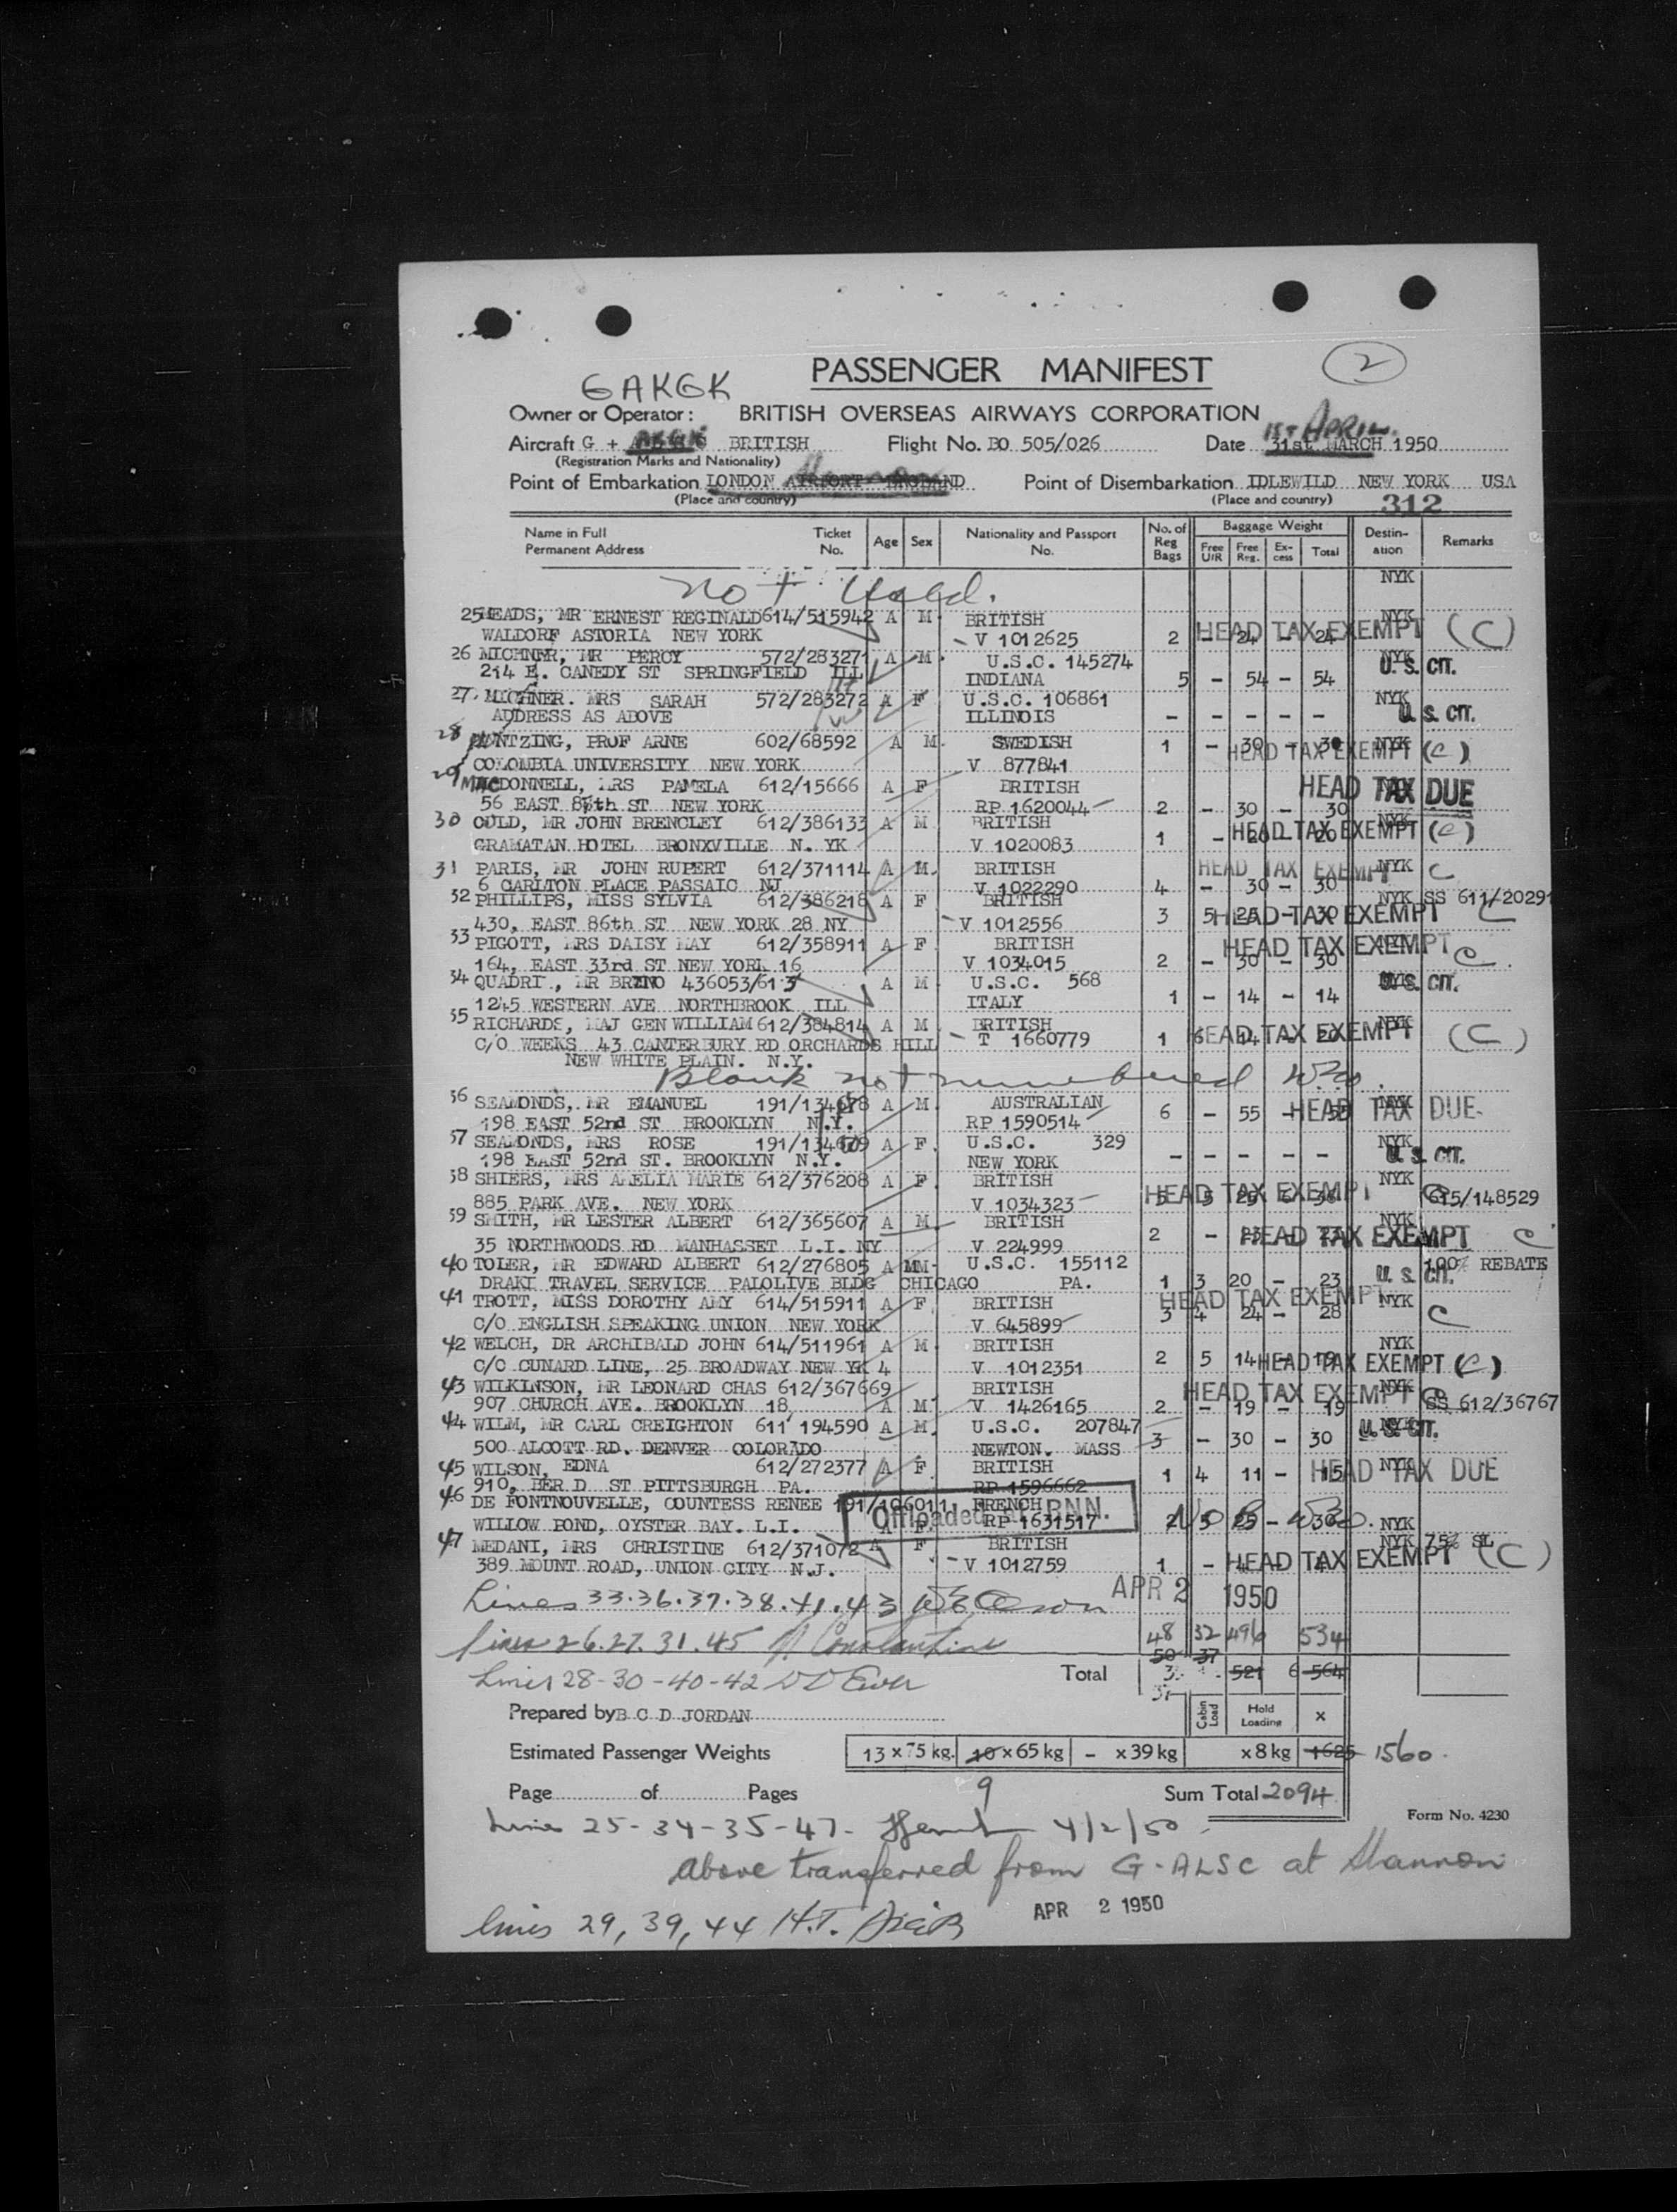 PASSENGER MANIFEST
2
GAKGK
Owner or Operator: BRITISH OVERSEAS AIRWAYS CORPORATION
1ST APRIL.
Aircraft G + BRITISH Flight No. BO 505/026 Date 31st MARCH 1950
(Registration Marks and Nationality)
Point of Embarkation LONDON AIRPORT ENGLAND Point of Disembarkation IDLEWILD NEW YORK USA
(Place and country) (Place and country) 312
Name in Full Permanent Address Ticket No. Age Sex Nationality and Passport No. No. of Reg Bags Baggage Weight Free U/R Free Reg. Ex-cess Total Destin-ation Remarks
not used. NYK
25 HEADS, MR ERNEST REGINALD 614/515942 A M BRITISH NYK
WALDORF ASTORIA NEW YORK V 1012625 2 - 24 - 24 HEAD TAX EXEMPT (C)
26 MICHNER, MR PERCY 572/283271 A M U.S.C. 145274 NYK U.S. CIT.
214 E. CANEDY ST SPRINGFIELD ILL INDIANA 5 - 54 - 54
27. MICHNER. MRS SARAH 572/283272 A F U.S.C. 106861 NYK
ADDRESS AS ABOVE ILLINOIS - - - - - U.S. CIT.
28 MUNTZING, PROF ARNE 602/68592 A M SWEDISH 1 - 30 - 30 NYK HEAD TAX EXEMPT (C)
COLOMBIA UNIVERSITY NEW YORK V 877841
29 MACDONNELL, MRS PAMELA 612/15666 A F BRITISH HEAD TAX DUE
56 EAST 87th ST NEW YORK RP 1620044 2 - 30 - 30
30 GOLD, MR JOHN BRENCLEY 612/386133 A M BRITISH NYK
GRAMATAN HOTEL BRONXVILLE N. YK V 1020083 1 - 20 - 20 HEAD TAX EXEMPT (C)
31 PARIS, MR JOHN RUPERT 612/371114 A M. BRITISH HEAD TAX EXEMPT NYK C
6 CARLTON PLACE PASSAIC NJ V 1022290 4 - 30 - 30
32 PHILLIPS, MISS SYLVIA 612/386218 A F BRITISH NYK SS 611/20291
430, EAST 86th ST NEW YORK 28 NY V 1012556 3 5 25 - 30 HEAD TAX EXEMPT C
33 PIGOTT, MRS DAISY MAY 612/358911 A F BRITISH HEAD TAX EXEMPT C
164, EAST 33rd ST NEW YORK 16 V 1034015 2 - 30 - 30
34 QUADRI, MR BRUNO 436053/613 A M U.S.C. 568 NYK U.S. CIT.
1245 WESTERN AVE NORTHBROOK ILL ITALY 1 - 14 - 14
35 RICHARDS, MAJ GEN WILLIAM 612/384814 A M BRITISH NYK
C/O WEEKS 43 CANTERBURY RD ORCHARDS HILL T 1660779 1 6 14 - 20 HEAD TAX EXEMPT (C)
NEW WHITE PLAIN. N.Y.
Blank not numbered
36 SEAMONDS, MR EMANUEL 191/134678 A M. AUSTRALIAN 6 - 55 - 55 NYK HEAD TAX DUE
198 EAST 52nd ST BROOKLYN N.Y. RP 1590514
37 SEAMONDS, MRS ROSE 191/134679 A F. U.S.C. 329 NYK
198 EAST 52nd ST. BROOKLYN N.Y. NEW YORK - - - - - U.S. CIT.
38 SHIERS, MRS AMELIA MARIE 612/376208 A F. BRITISH NYK
885 PARK AVE. NEW YORK V 1034323 HEAD TAX EXEMPT C 615/148529
39 SMITH, MR LESTER ALBERT 612/365607 A M. BRITISH NYK
35 NORTHWOODS RD MANHASSET L.I. NY V 224999 2 - 23 - 23 HEAD TAX EXEMPT C
40 TOLER, MR EDWARD ALBERT 612/276805 A M U.S.C. 155112 100% REBATE
DRAKE TRAVEL SERVICE PALOLIVE BLDG CHICAGO PA. 1 3 20 - 23 U.S. CIT.
41 TROTT, MISS DOROTHY AMY 614/515911 A F BRITISH HEAD TAX EXEMPT NYK
C/O ENGLISH SPEAKING UNION NEW YORK V 645899 3 4 24 - 28 C
42 WELCH, DR ARCHIBALD JOHN 614/511961 A M BRITISH NYK
C/O CUNARD LINE, 25 BROADWAY NEW YK 4 V 1012351 2 5 14 - 19 HEAD TAX EXEMPT (C)
43 WILKINSON, MR LEONARD CHAS 612/367669 BRITISH HEAD TAX EXEMPT NYK C
907 CHURCH AVE. BROOKLYN 18 A M V 1426165 2 - 19 - 19 SS 612/36767
44 WILM, MR CARL CREIGHTON 611 194590 A M. U.S.C. 207847 NYK U.S. CIT.
500 ALCOTT RD. DENVER COLORADO NEWTON. MASS 3 - 30 - 30
45 WILSON, EDNA 612/272377 A F. BRITISH 1 4 11 - 15 NYK HEAD TAX DUE
910, BER D ST PITTSBURGH PA. RP 1596662
46 DE FONTNOUVELLE, COUNTESS RENEE 191/106011 FRENCH
Offloaded at RNN.
WILLOW POND, OYSTER BAY. L.I. A F. RP 1631517 2 5 25 - 30 NYK
47 MEDANI, MRS CHRISTINE 612/371072 A F BRITISH NYK 75% SL
389 MOUNT ROAD, UNION CITY N.J. V 1012759 1 - HEAD TAX EXEMPT (C)
Lines 33.36.37.38.41.43 APR 2 1950
lines 26.27.31.45 Constantine 48 32 496 534
50 37
Lines 28-30-40-42 Total 521 6 564
Prepared by B C D JORDAN Cabin Load Hold Loading x
Estimated Passenger Weights 13 x 75 kg. 10 x 65 kg - x 39 kg x 8 kg 1625 1560
9
Page of Pages Sum Total 2094
Form No. 4230
Lines 25-34-35-47- 4/2/50
above transferred from G-ALSC at Shannon
APR 2 1950
lines 29, 39, 44 H.T.